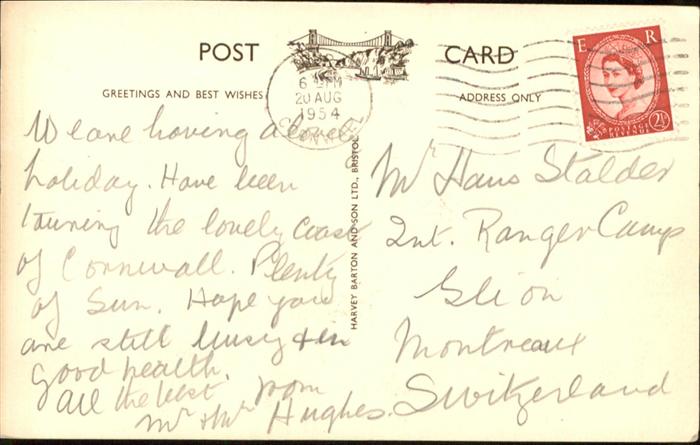 POST CARD
GREETINGS AND BEST WISHES
ADDRESS ONLY
6 PM
20 AUG
1954
CORNWALL
E R
POSTAGE
REVENUE
2½
We are having a lovely
holiday. Have been
touring the lovely coast
of Cornwall. Plenty
of Sun. Hope you
are still busy & in
good health.
All the best from
Mr & Mrs Hughes.
HARVEY BARTON AND SON LTD., BRISTOL
Mr Hans Stalder
Int. Ranger Camp
Glion
Montreaux
Switzerland